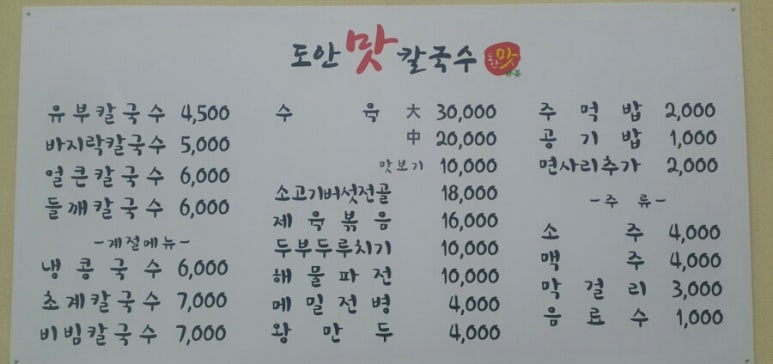 도안맛칼국수
유부칼국수 4,500
바지락칼국수 5,000
얼큰칼국수 6,000
들깨칼국수 6,000
-계절메뉴-
냉콩국수 6,000
초계칼국수 7,000
비빔칼국수 7,000
수육 大 30,000
中 20,000
맛보기 10,000
소고기버섯전골 18,000
제육볶음 16,000
두부두루치기 10,000
해물파전 10,000
메밀전병 4,000
왕만두 4,000
주먹밥 2,000
공기밥 1,000
면사리추가 2,000
-주류-
소주 4,000
맥주 4,000
막걸리 3,000
음료수 1,000